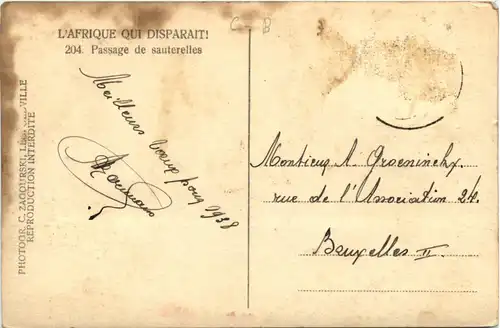 L'AFRIQUE QUI DISPARAIT!
204. Passage de sauterelles
C B
PHOTOGR. C. ZAGOURSKI, LÉOPOLDVILLE
REPRODUCTION INTERDITE
Meilleurs voeux pour 1938
Montieux A. Groeninckx
rue de l'Association 24.
Bruxelles II.